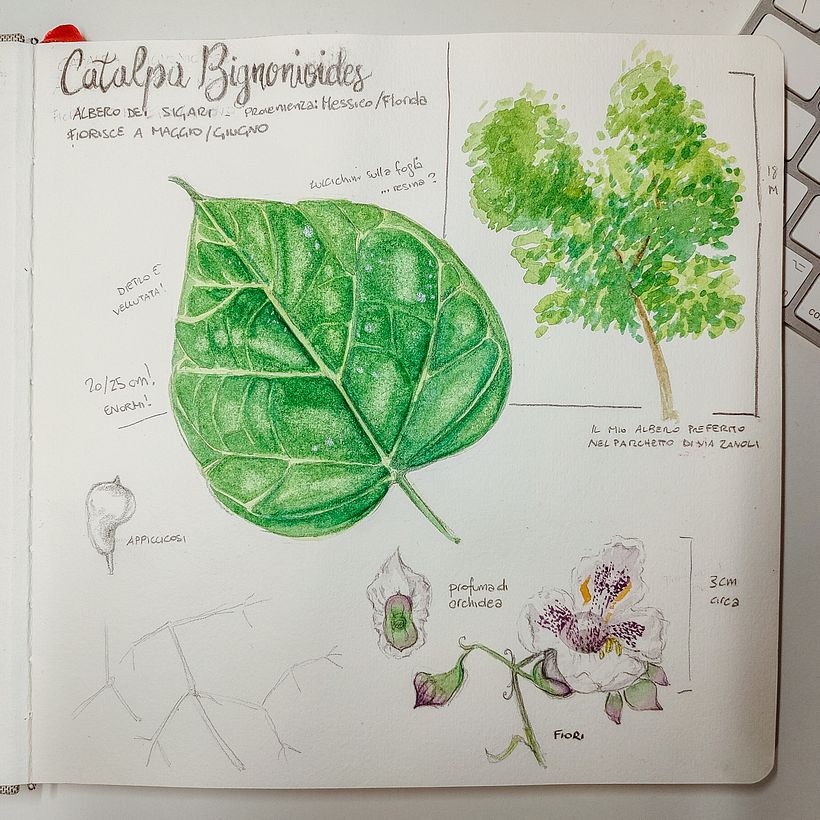 Catalpa Bignonioides
ALBERO DEI SIGARI - Provenienza: Messico/Florida
FIORISCE A MAGGIO/GIUGNO
luccichini sulla foglia
... resina?
18
M
DIETRO È
VELLUTATA!
20/25 cm!
ENORMI!
IL MIO ALBERO PREFERITO
NEL PARCHETTO DI VIA ZANOLI
APPICCICOSI
profuma di
orchidea
3 cm
circa
FIORI